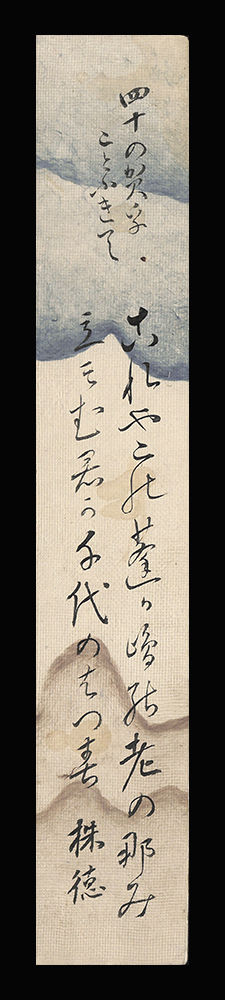 四十の賀を
ことふきて
これやこの蓬か嶋の老の那み
立そむ君か千代のはつ春 株徳